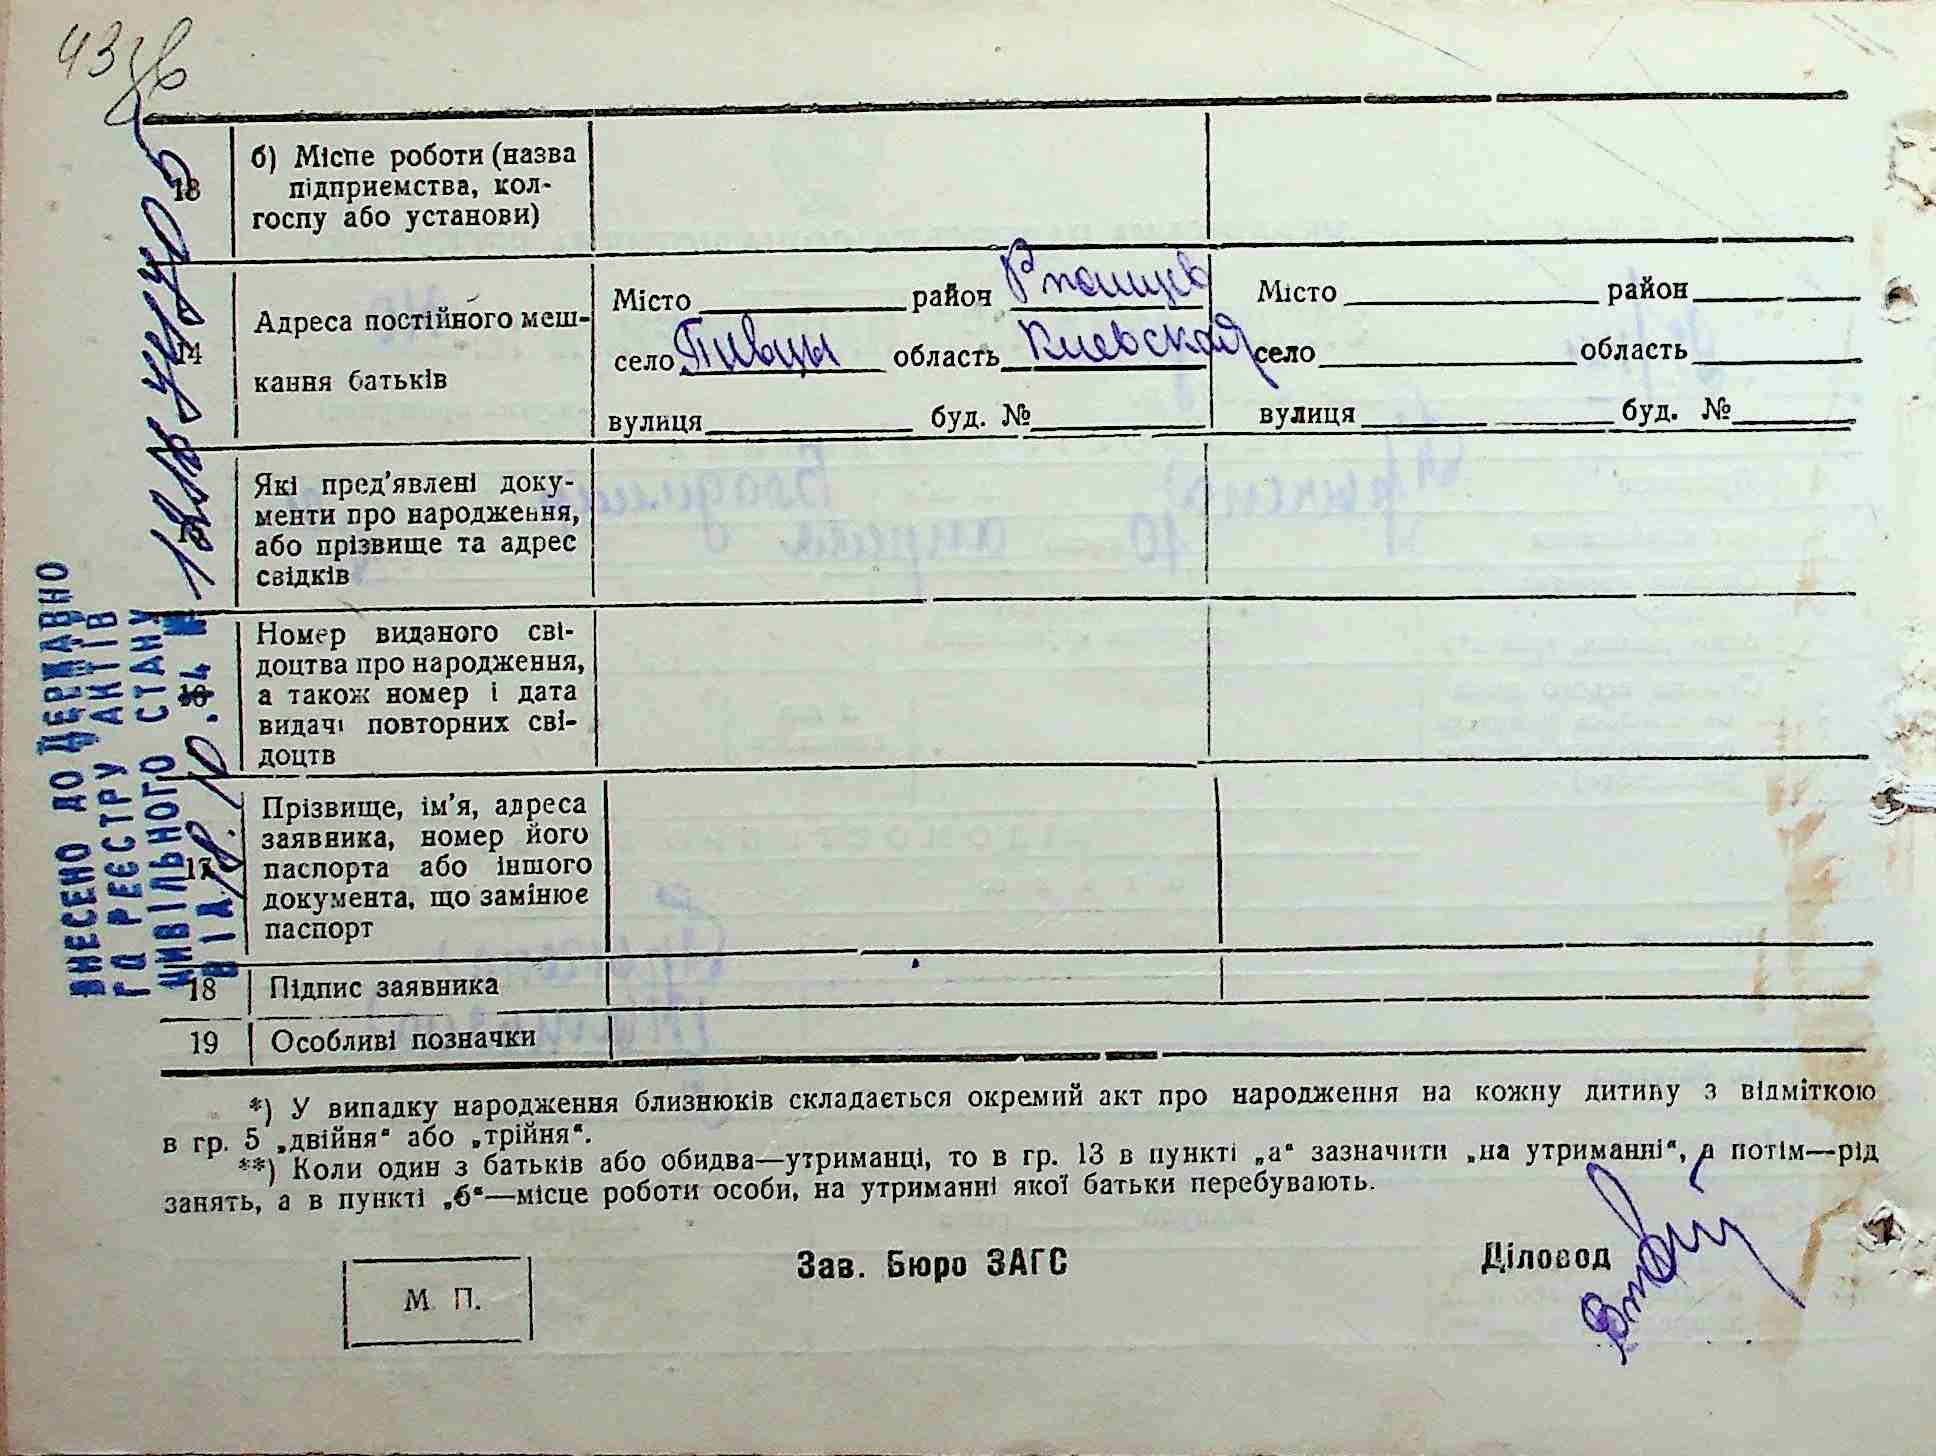 43
13 б) Місце роботи (назва
підприємства, кол-
госпу або установи)
14 Адреса постійного меш-
кання батьків
Місто район
село Пивцы область Киевская
вулиця буд. №
Місто район
село область
вулиця буд. №
Які пред'явлені доку-
менти про народження,
або прізвище та адрес
свідків
16 Номер виданого сві-
доцтва про народження,
а також номер і дата
видачі повторних сві-
доцтв
17 Прізвище, ім'я, адреса
заявника, номер його
паспорта або іншого
документа, що замінює
паспорт
18 Підпис заявника
19 Особливі позначки
ВНЕСЕНО ДО ДЕРЖАВНО
ГО РЕЄСТРУ АКТІВ
ЦИВІЛЬНОГО СТАНУ
ВІД №
*) У випадку народження близнюків складається окремий акт про народження на кожну дитину з відміткою
в гр. 5 „двійня“ або „трійня“.
**) Коли один з батьків або обидва—утриманці, то в гр. 13 в пункті „а“ зазначити „на утриманні“, а потім—рід
занять, а в пункті „б“—місце роботи особи, на утриманні якої батьки перебувають.
М. П.
Зав. Бюро ЗАГС
Діловод